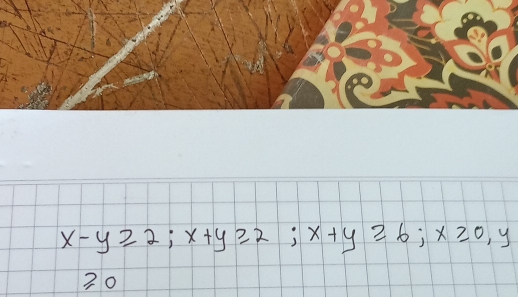 x-y≥2; x+y≥2 ; x+y ≥ 6; x≥0, y
≥0